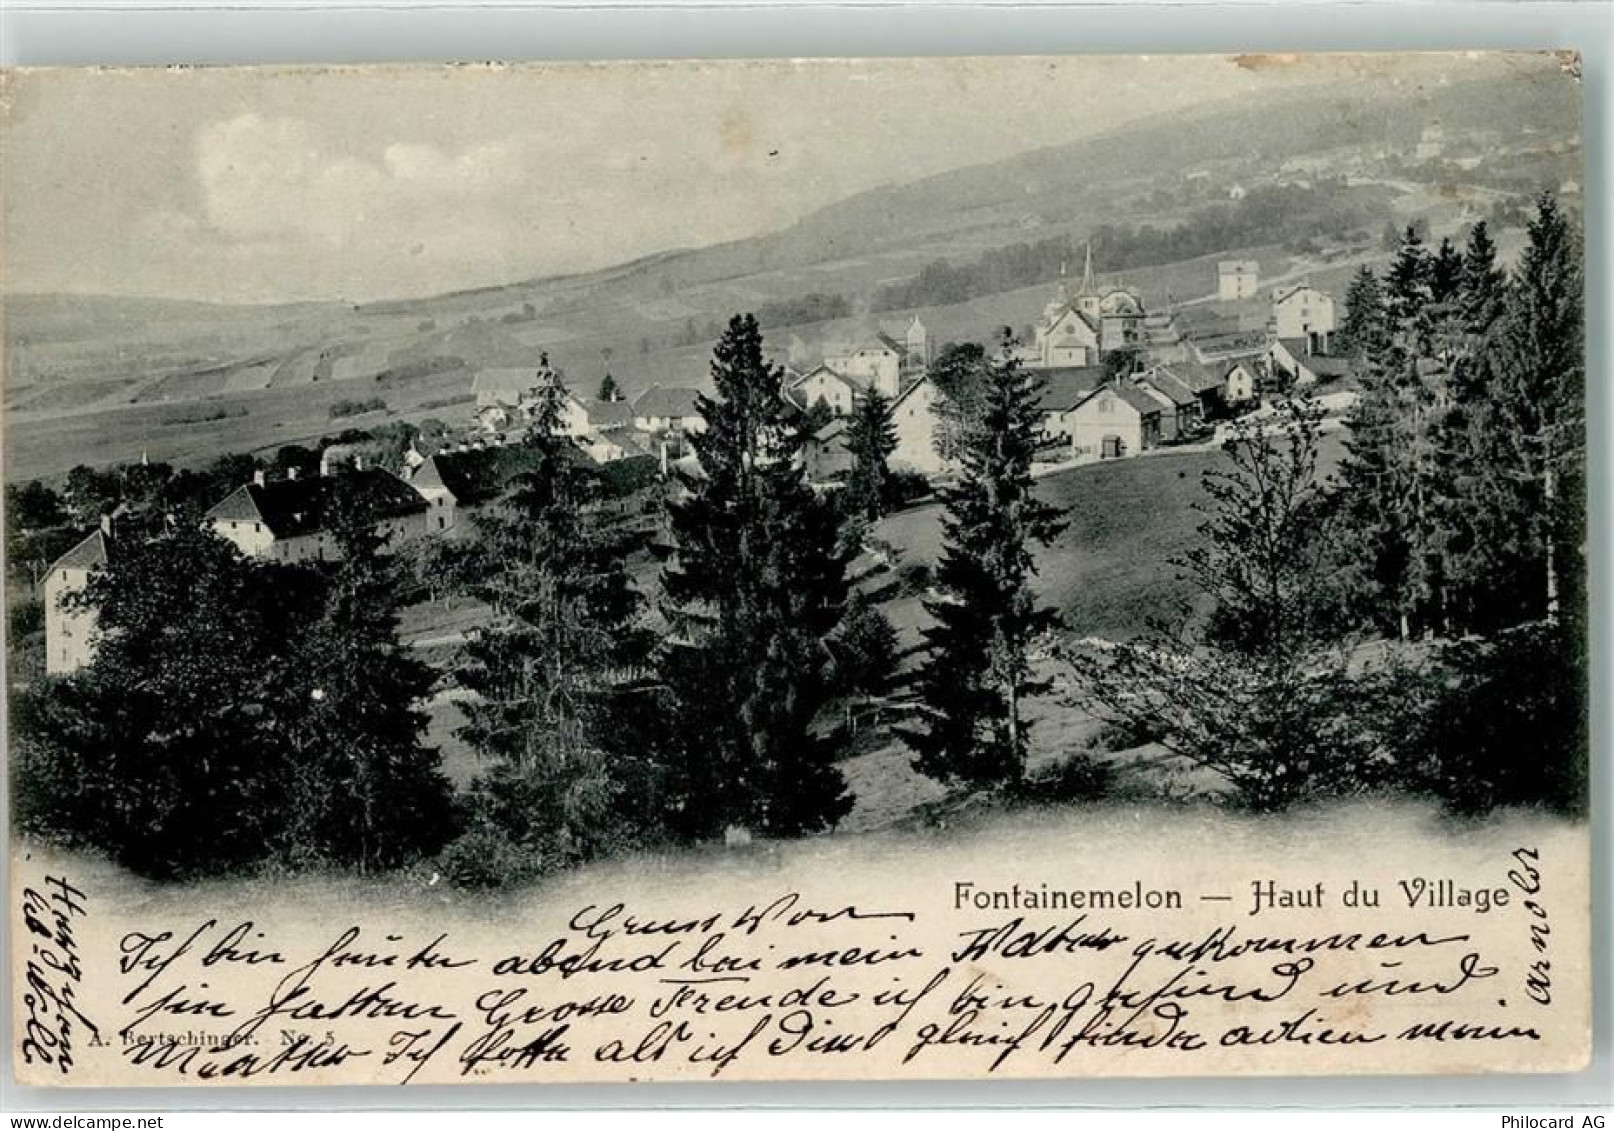 Fontainemelon — Haut du Village
Gruss von
Ich bin heute abend bei mein Vater gekommen
sie hatten Grosse Freude ich bin gesund und
A. Bertschinger. No. 5
Mutter Ich hoffe als ich Dich gleich finde adieu mein
Herz
Arnold
Philocard AG